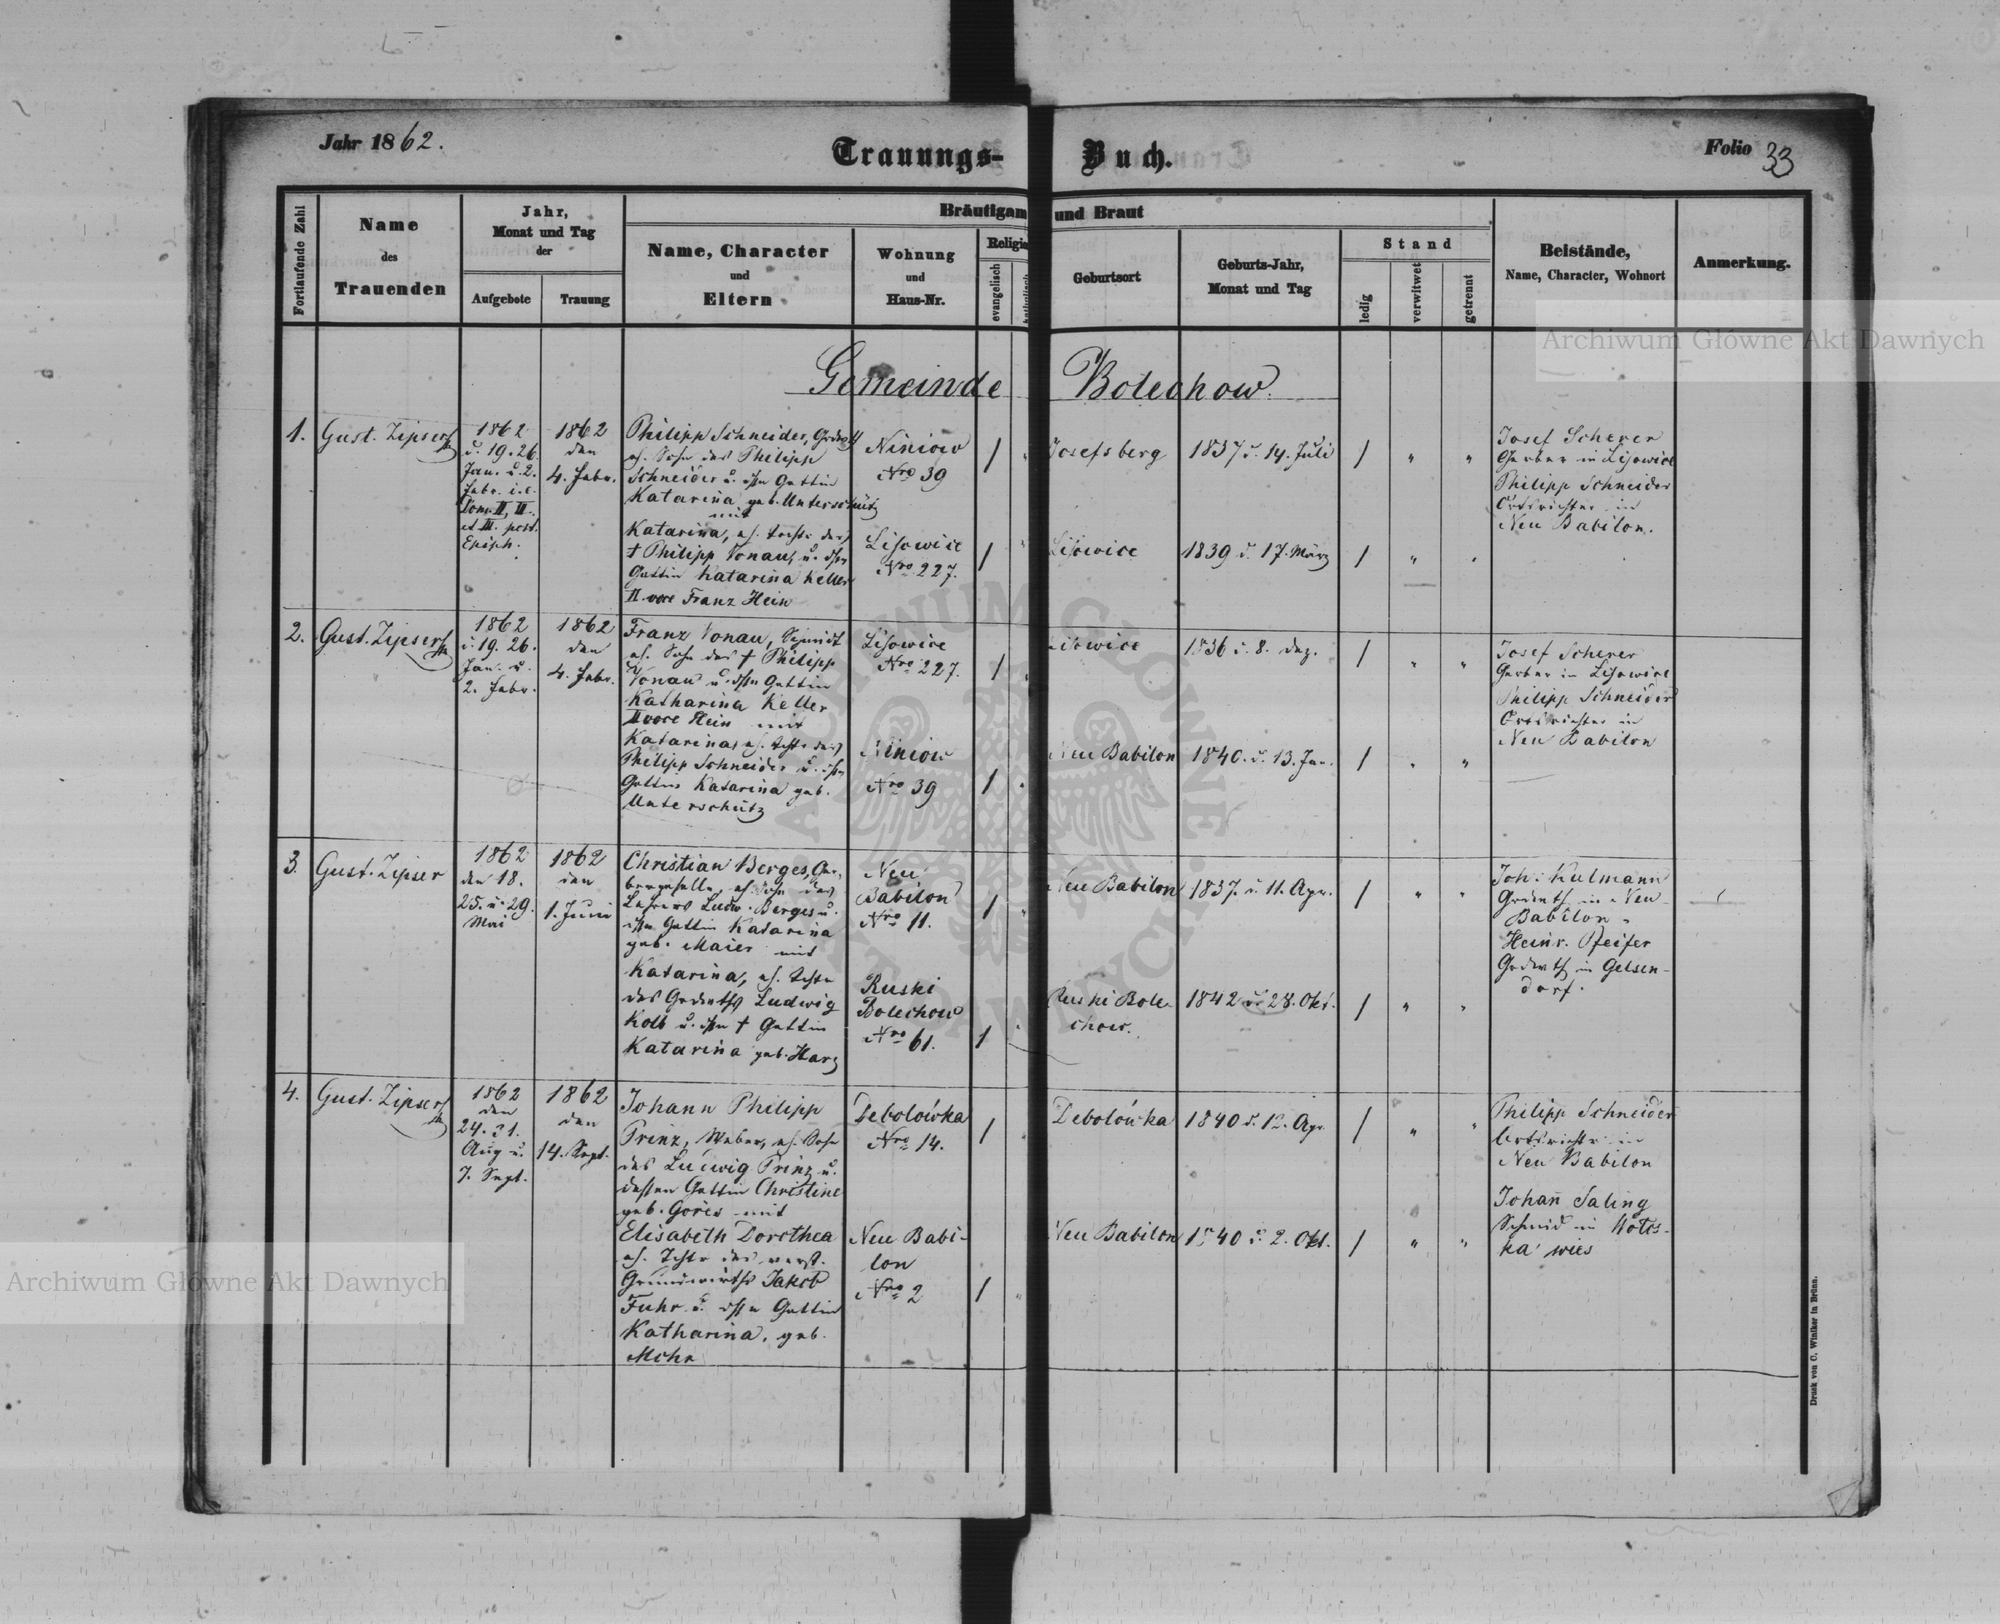 Jahr 1862.
Trauungs-Buch.
Folio 33
Fortlaufende Zahl
Name
des
Trauenden
Jahr,
Monat und Tag
der
Aufgebote
Trauung
Bräutigam und Braut
Name, Character
und
Eltern
Wohnung
und
Haus-Nr.
Religio
evangelisch
katholisch
Geburtsort
Geburts-Jahr,
Monat und Tag
Stand
ledig
verwitwet
getrennt
Beistände,
Name, Character, Wohnort
Anmerkung.
Gemeinde Bolechow.
1.
Gust. Zipser
1862
d. 19. 26.
Jan. u. 2.
Febr. i. e.
Dom. II, III.
et III. post.
Epiph.
1862
den
4. Febr.
Philipp Schneider, Grdwth
eh. Sohn des Philipp
Schneider u. ihr Gattin
Katarina geb. Unterschütz
mit
Katarina, eh. Tochter des
† Philipp Vonau, u. dssn
Gattin Katarina Keller
II voce Franz Hein
Niniow
Nro 39
Lisowice
Nro 227.
1
1
Josefsberg
Lisowice
1837 d. 14. Juli
1839 d. 17. März
1 " "
1 " "
Josef Scherer
Gerber in Lisowice
Philipp Schneider
Ortsrichter in
Neu Babilon.
2.
Gust. Zipser
1862
d. 19. 26.
Jan. u.
2. Febr.
1862
den
4. Febr.
Franz Vonau, Schmidt
eh. Sohn des † Philipp
Vonau u. dssn Gattin
Katharina Keller
II voce Hein mit
Katarina, eh. Tchtr des
Philipp Schneider u. ihr
Gattin Katarina geb.
Unterschütz
Lisowice
Nro 227.
Niniow
Nro 39
1
1
Lisowice
Neu Babilon
1836 d. 8. Dez.
1840. d. 13. Jan.
1 " "
1 " "
Josef Scherer
Gerber in Lisowice
Philipp Schneider
Ortsrichter in
Neu Babilon
3.
Gust. Zipser
1862
den 18.
25. u. 29.
Mai
1862
den
1. Juni
Christian Berges, Ger-
bergeselle, eh. Sohn des
Lehrers Ludw. Berges u.
ihr Gattin Katarina
geb. Maier mit
Katarina, eh. Tchtr
des Grdwths Ludwig
Kolb u. ihr † Gattin
Katarina geb. Harz
Neu
Babilon
Nro 11.
Ruski
Bolechow
Nro 61.
1
1
Neu Babilon
Ruski Bole-
chow.
1837. d. 11. Apr.
1842 d. 28. Okt.
1 " "
1 " "
Joh. Kulmann
Grdwth in Neu
Babilon.
Heinr. Pfeifer
Grdwth in Gelsen-
dorf.
4.
Gust. Zipser
1862
den
24. 31.
Aug u.
7. Sept.
1862
den
14. Sept.
Johann Philipp
Prinz, Weber, eh. Sohn
des Ludwig Prinz u.
dessen Gattin Christine
geb. Göres mit
Elisabeth Dorothea
eh. Tchtr des verst.
Grundwirths Jakob
Fuhr u. dssn Gattin
Katharina, geb.
Mohr
Debolówka
Nro 14.
Neu Babi-
lon
Nro 2
1
1
Debolówka
Neu Babilon
1840 d. 12. Apr.
1840 d. 2. Okt.
1 " "
1 " "
Philipp Schneider
Ortsrichter in
Neu Babilon
Johann Saling
Schmid in
ka wies
Druck von C. Winiker in Brünn.
Archiwum Główne Akt Dawnych
Archiwum Główne Akt Dawnych
ARCHIWUM GŁÓWNE AKT DAWNYCH